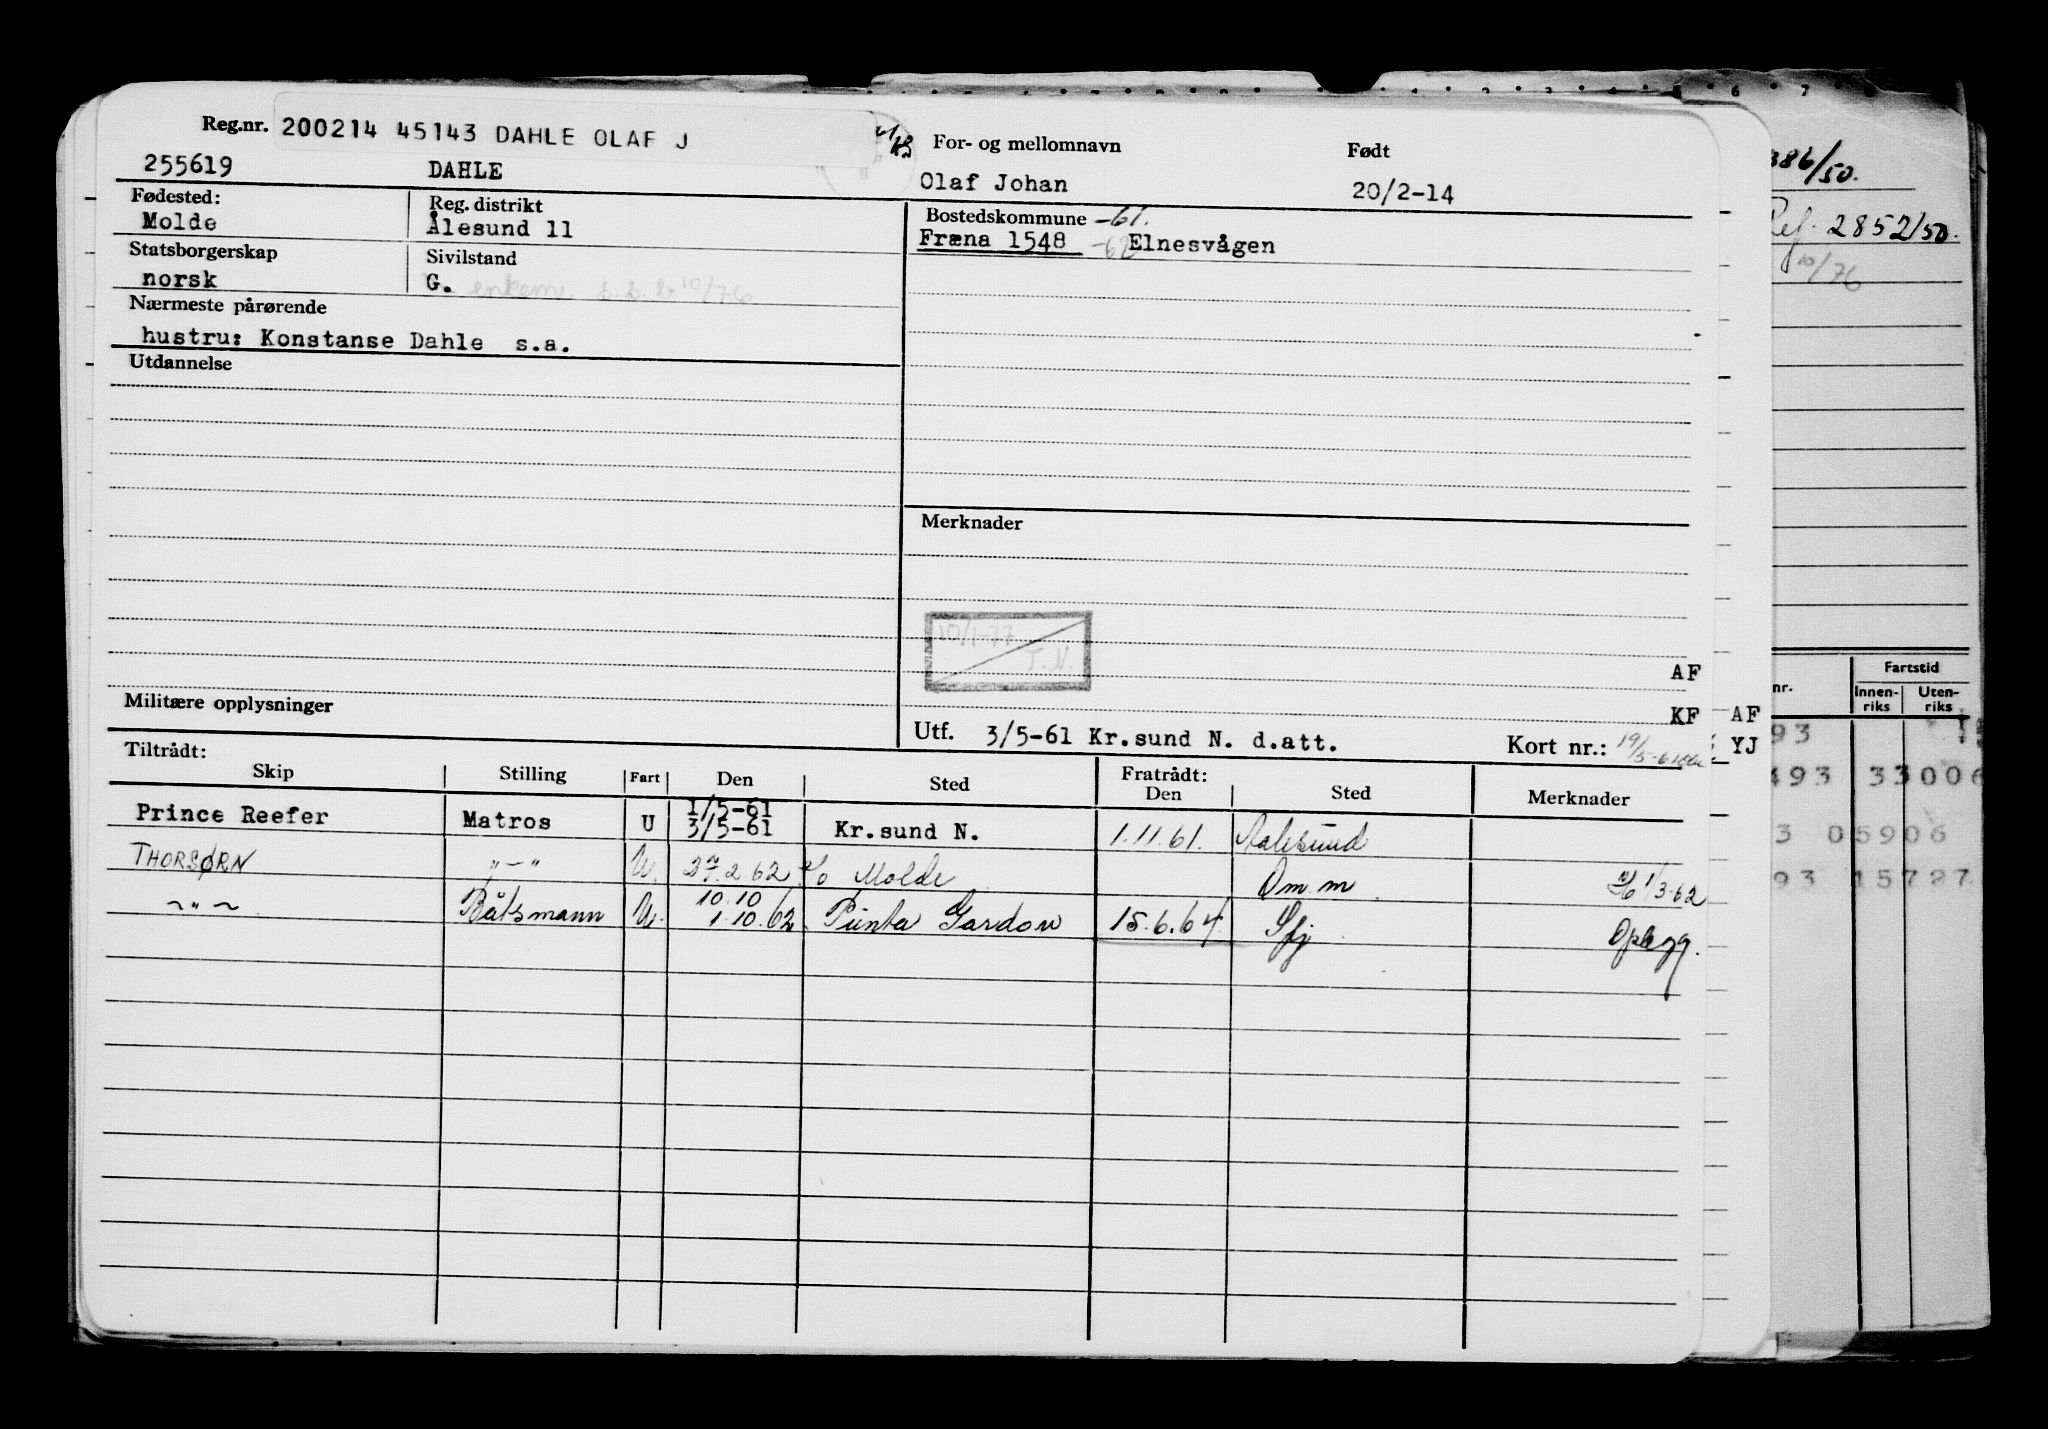 Reg.nr. 200214 45143 DAHLE OLAF J
255619 DAHLE
For- og mellomnavn Født
Olaf Johan 20/2-14
Fødested: Reg. distrikt
Molde Ålesund 11
Bostedskommune -61.
Fræna 1548 -62 Elnesvågen
Statsborgerskap Sivilstand
norsk G. enkem. 10/76
Nærmeste pårørende
hustru: Konstanse Dahle s.a.
Utdannelse
Merknader
10/1-77
T.N.
AF
KF
Militære opplysninger
Utf. 3/5-61 Kr.sund N. d.att. Kort nr.: 19/5-61
Tiltrådt: Fratrådt:
Skip Stilling Fart Den Sted Den Sted Merknader
Prince Reefer Matros U 1/5-61 3/5-61 Kr.sund N. 1.11.61. Aalesund
THORSØRN "-" U. 2.62 Molde Om.m. 1/3-62
~"~ Båtsmann U. 10.10 1.10.62 Punta Gardon 15.6.64. Sfj Oplagg.
386/50.
Ref. 2852/50.
10/76
Fartstid
nr. Innen-riks Uten-riks
AF
YJ
93
493 33006
3 05906
93 15727